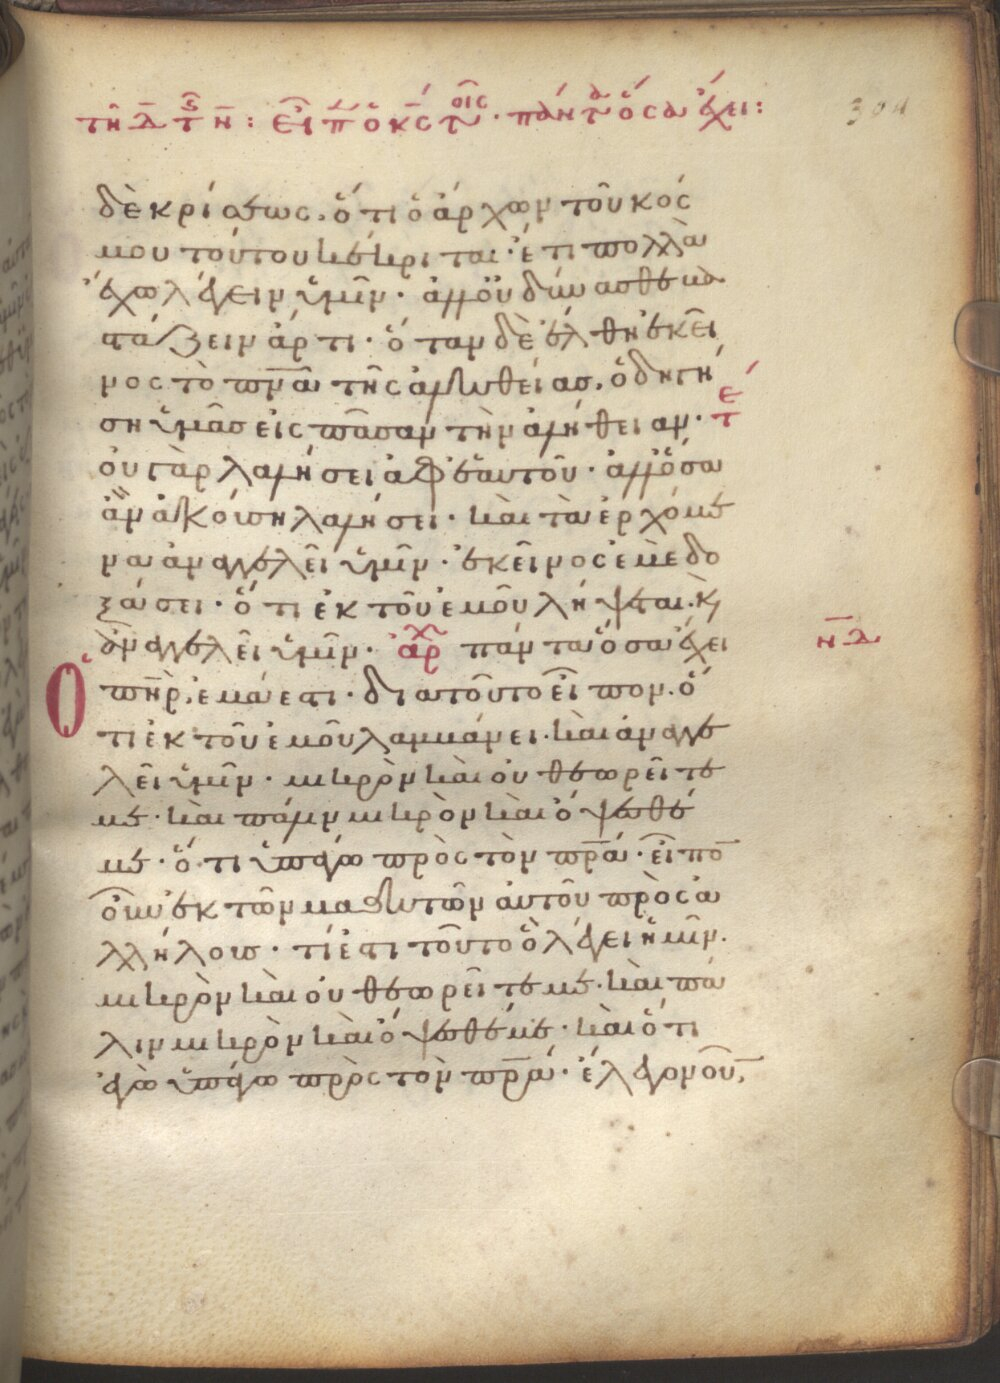 τῆ δ̄ τῆς ν̄ : εἶπ ὁ κ̄ς τοῖς · πάντα ὅσα ἔχει :
304
δὲ κρίσεως. ὅτι ὁ ἄρχων τοῦ κόσ
μου τούτου κέκριται· ἔτι πολλὰ
ἔχω λέγειν ὑμῖν· ἀλλ' οὐ δύνασθε βα
στάζειν ἄρτι· ὅταν δὲ ἔλθη ἐκεῖ
νος τὸ πν̄ᾱ τῆς ἀληθείας, ὁδηγή
ση ὑμᾶς εἰς πᾶσαν τὴν ἀλήθειαν· τέ
οὐ γὰρ λαλήσει ἀφ' ἑαυτοῦ· ἀλλ' ὅσα
ἂν ἀκούση λαλήσει· καὶ τὰ ἐρχόμε
να ἀναγγελεῖ ὑμῖν· ἐκεῖνος ἐμὲ δο
ξάσει· ὅτι ἐκ τοῦ ἐμοῦ λήψεται. κ
ἀναγγελεῖ ὑμῖν· ἀρχ πάντα ὅσα ἔχει
ν̄δ̄
Ὁ πη̄ρ, ἐμά ἐστι· διατοῦτο εἶπον. ὅ
τι ἐκ τοῦ ἐμοῦ λαμβάνει· καὶ ἀναγγε
λεῖ ὑμῖν· μικρὸν καὶ οὐ θεωρεῖτέ
με· καὶ πάλιν μικρὸν καὶ ὄψεσθέ
με· ὅτι ὑπάγω πρὸς τὸν πρ̄α· εἶπο
οὖν ἐκ τῶν μαθητῶν αὐτοῦ πρὸς ἀ
λλήλους· τί ἐστι τοῦτο ὃ λέγει ἡμῖν.
μικρὸν καὶ οὐ θεωρεῖτέ με· καὶ πά
λιν μικρὸν καὶ ὄψεσθέ με· καὶ ὅτι
ἐγὼ ὑπάγω πρὸς τὸν πρ̄α· ἔλεγον οὖ,